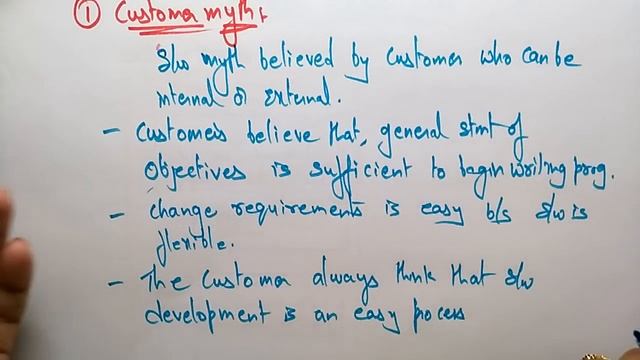 ① Customer myth :
S/w myth believed by customer who can be
internal or external.
- Customers believe that, general stmt of
Objectives is sufficient to begin writing prog.
- change requirements is easy b/s s/w is
flexible.
- The customer always think that s/w
development is an easy process